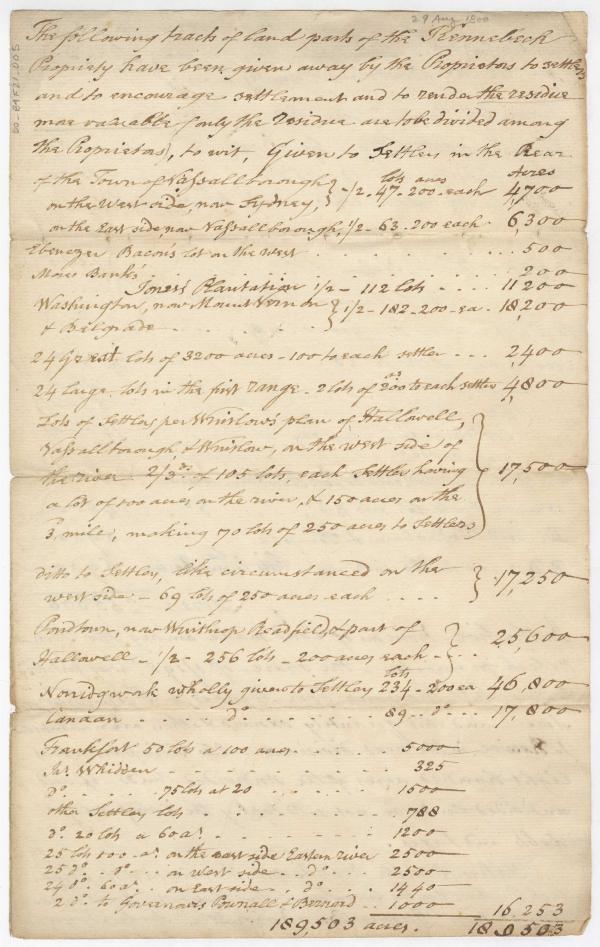 29 Aug 1800
The following tracts of land parts of the Kennebeck
Propriety have been given away by the Proprietors to settlers
and to encourage settlement and to render the residue
more valuable (only the residue are to be divided among
the Proprietors), to wit, Given to Settlers in the Rear
of the Town of Vassallborough lots acres Acres
on the West side, now Sydney, } 1/2 - 47 - 200 - each 4,700
on the East side, now Vassallborough, 1/2 - 63 - 200 each - 6,300
Ebenezer Bacon's lot on the west . . . . . . 500
Moses Bank's . . . . . . 200
Jones' Plantation 1/2 - 112 lots . . . . 11200
Washington, now Mount Vernon } 1/2 - 182 - 200 - ea - 18,200
& Belgrade - . . . .
24 Great lots of 3200 acres - 100 to each settler . . . 2,400
24 large lots in the first range - 2 lots of 200 as. to each settler 4,800
Lots of Settlers per Winslow's plan of Hallowell,
Vassallborough, & Winslow, on the west side of
the river 2/3ds. of 105 lots, each Settler having } 17,500
a lot of 100 acres on the river, & 150 acres on the
3 mile, making 70 lots of 250 acres to Settlers
ditto to Settlers, like circumstanced on the } 17,250
west side - 69 lots of 250 acres each . . . .
Pondtown, now Winthrop Readfield, & part of } 25,600
Hallowell - 1/2 - 256 lots - 200 acres each - .
Norridgwork wholly given to Settlers 234 lots - 200 ea 46,800
Canaan . . . . do . . . . 89 - do . . . 17,800
Frankfort 50 lots a 100 acres . . . . . 5000
Jno. Whidden . . . . . . 325
Do . . . . 75 lots at 20 . . . . . 1500
other Settlers lots . . . . . . 788
do. 20 lots a 60 as. . . . . . . 1200
25 lots 100 - as. on the east side Eastern river 2500
25 do. . do . . . on west side . . do . . . 2500
24 do. 60 as. . . on East side . . do . . . 1440
2 do. to Governors Pownall & Bernard . . 1000 16,253
189,503 acres. 189503